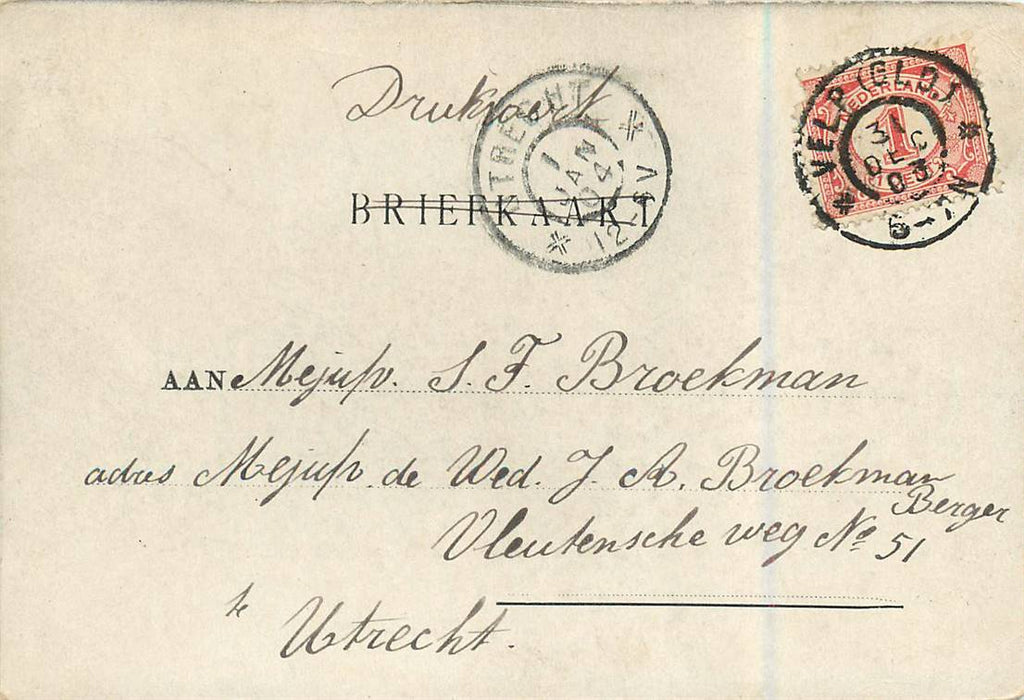 Drukwerk
BRIEFKAART
UTRECHT
1 JAN 04
12-1V
VELP (GLD.)
31 DEC 03
6-7N
NEDERLAND
1
AAN Mejufv. S. F. Broekman
adres Mejufv. de Wed. J. A. Broekman
Berger
Vleutensche weg No 51
te
Utrecht.